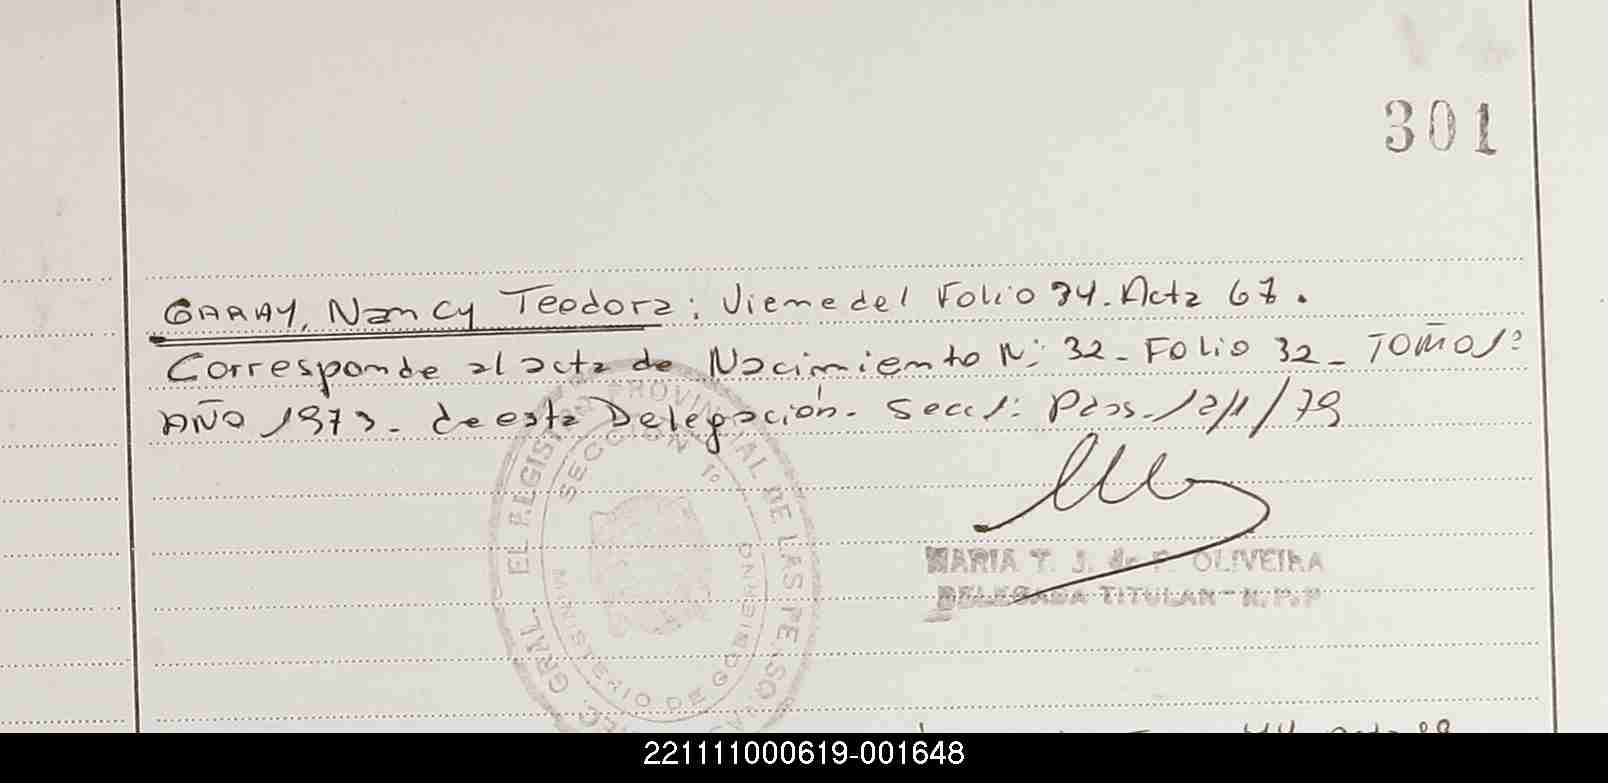 301
GARAY, Nancy Teodora: Viene del Folio 34. Acta 67.
Corresponde al acta de Nacimiento N: 32 - Folio 32 - TOMO 1º
AÑO 1973. de esta Delegación. Secc 1: Pdas. 12/1/79
MARIA T. J. de P. OLIVEIRA
DELEGADA TITULAR - R.P.P
GRAL. EL REGISTRO PROVINCIAL DE LAS PERSONAS
SECCION 1º
MINISTERIO DE GOBIERNO
221111000619-001648